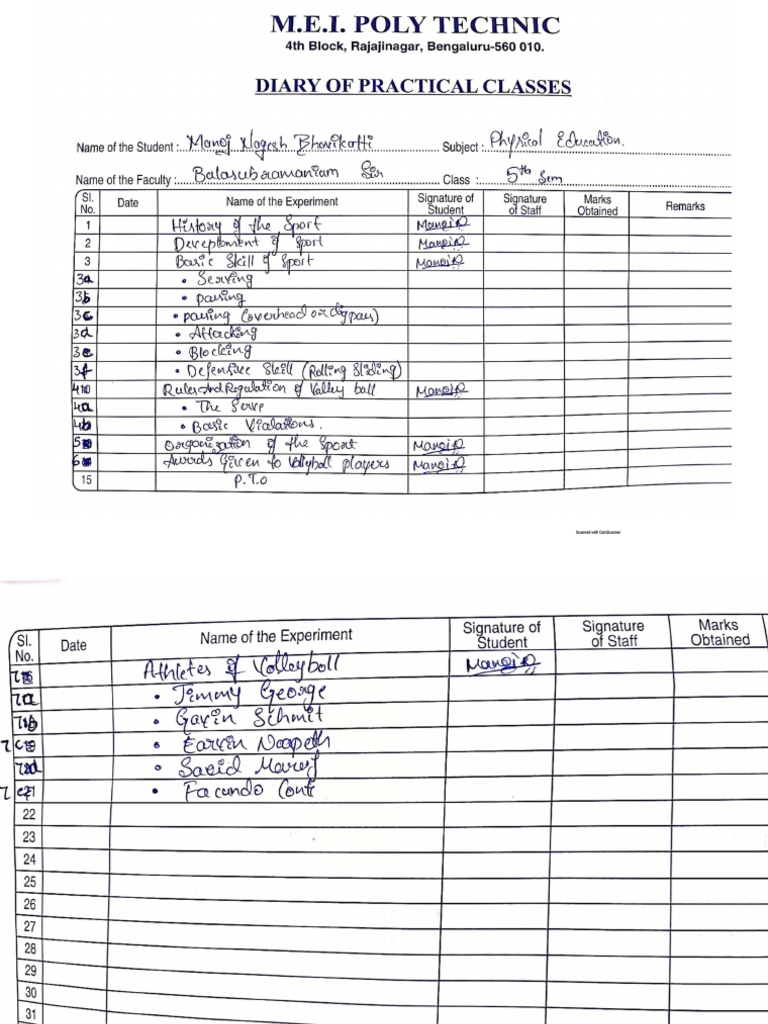 M.E.I. POLY TECHNIC
4th Block, Rajajinagar, Bengaluru-560 010.
DIARY OF PRACTICAL CLASSES
Name of the Student : Manoj Nagesh Bhavikatti Subject : Physical Education.
Name of the Faculty : Balasubramaniam Sir Class : 5th Sem
Sl. No. Date Name of the Experiment Signature of Student Signature of Staff Marks Obtained Remarks
1 History of the Sport Manoj
2 Development of Sport Manoj
3 Basic Skill of Sport Manoj
3a • Serving
3b • passing
3c • passing (overhead or dig pass)
3d • Attacking
3e • Blocking
3f • Defensive Skill (Rolling Sliding)
4 Rules and Regulation of Valley ball Manoj
4a • The Serve
4b • Basic Vialations.
5 Organization of the Sport Manoj
6 Awards Given to Volleyball players Manoj
15 P.T.O
Scanned with CamScanner
Sl. No. Date Name of the Experiment Signature of Student Signature of Staff Marks Obtained
7 Athletes of Volleyball Manoj
7a • Jimmy George
7b • Gavin Schmit
7c • Earvin Ngapeth
7d • Saeid Marouf
7e • Facundo Conte
22
23
24
25
26
27
28
29
30
31